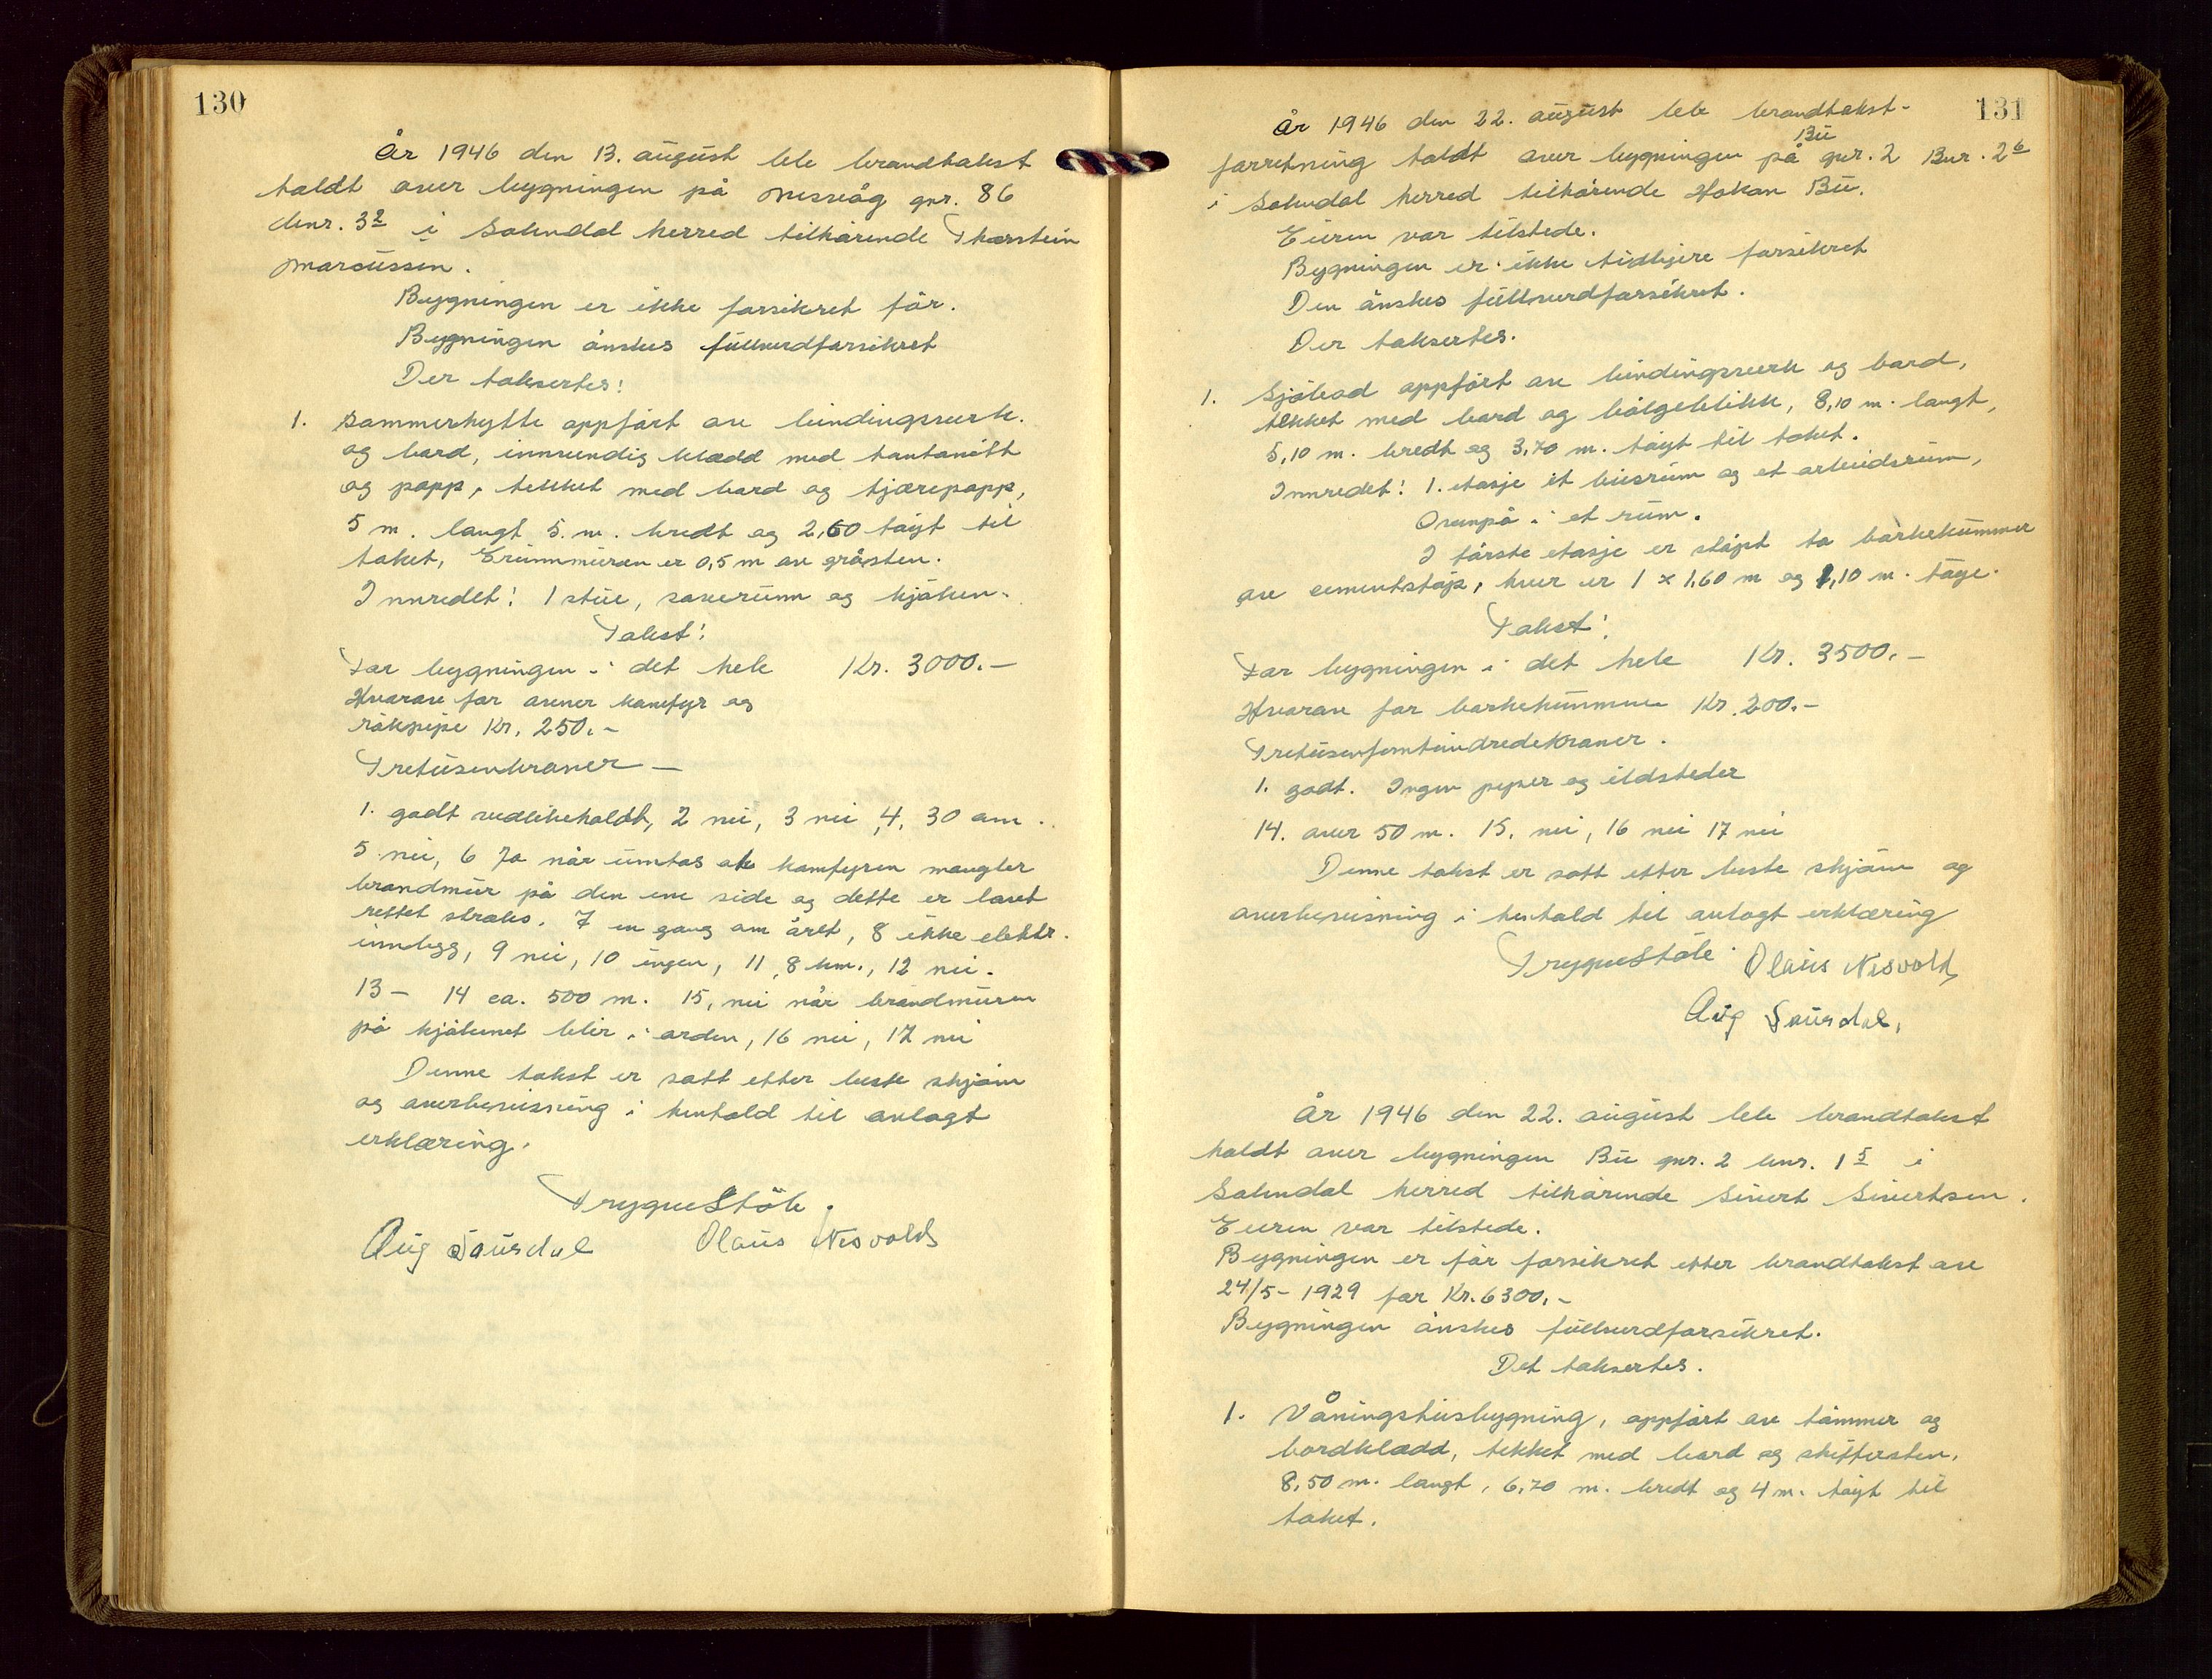 130
År 1946 den 13. august ble brandtakst
holdt over bygningen på Missvåg gnr. 86
bnr. 3² i Sokndal herred tilhørende Thorstein
Marcussen.
Bygningen er ikke forsikret før.
Bygningen ønskes fullverdforsikret
Der taksertes:
1. Sommerhytte oppført av bindingsverk.
og bord, innvendig kledd med tentanitt
og papp, tekket med bord og tjærepapp,
5 m. langt 5. m. bredt og 2,60 høgt til
taket, Grunnmuren er 0,5 m av gråsten.
Innredet: 1 stue, soverum og kjøken.
Takst:
For bygningen i det hele Kr. 3000.-
Hvorav for ovner komfyr og
røkpipe Kr. 250.-
Tretusenkroner —
1. godt vedlikeholdt, 2 nei, 3 nei, 4, 30 cm.
5 nei, 6 Ja når untas at komfyren mangler
brandmur på den ene side og dette er lovet
rettet straks. 7 en gang om året, 8 ikke elektr.
innlegg, 9 nei, 10 ingen, 11, 8 km., 12 nei.
13 - 14 ca. 500 m. 15, nei når brandmuren
på kjøkenet blir i orden, 16 nei, 17 nei
Denne takst er satt etter beste skjønn
og overbevisning i henhold til avlagt
erklæring.
Trygve Støle.
Aug Saursdal Olaus Nesvold
131
År 1946 den 22. august ble brandtakst-
Bu
forretning holdt over bygningen på gnr. 2 Bnr. 2⁶
i Sokndal herred tilhørende Hakon Bu.
Eieren var tilstede.
Bygningen er ikke tidligere forsikret
Den ønskes fullverdforsikret.
Der taksertes.
1. Sjøbod oppført av bindingsverk og bord,
tekket med bord og bølgeblikk, 8,10 m. langt,
5,10 m. bredt og 3,70 m. høgt til taket.
Innredet: 1. etasje et buerum og et arbeidsrum,
Ovenpå i et rum.
I første etasje er støpt to barkekummer
av cementstøp, hver er 1 x 1,60 m og 1,10 m. høge.
Takst:
For bygningen i det hele Kr. 3500.-
Hvorav for barkekummene Kr. 200.-
Tretusenfemhundredekroner.
1. godt. Ingen piper og ildsteder
14. over 50 m. 15. nei, 16 nei 17 nei
Denne takst er satt etter beste skjønn og
overbevisning i henhold til avlagt erklæring
Trygve Støle. Olaus Nesvold,
Aug Saursdal,
År 1946 den 22. august ble brandtakst
holdt over bygningen Bu gnr. 2 bnr. 1⁵ i
Sokndal herred tilhørende Sivert Sivertsen.
Eieren var tilstede.
Bygningen er før forsikret etter brandtakst av
24/5 - 1929 for Kr. 6300.-
Bygningen ønskes fullverdforsikret.
Det taksertes.
1. Våningshusbygning, oppført av tømmer og
bordkledd, tekket med bord og skiffersten.
8,50 m. langt, 6,70 m. bredt og 4 m. høgt til
taket.